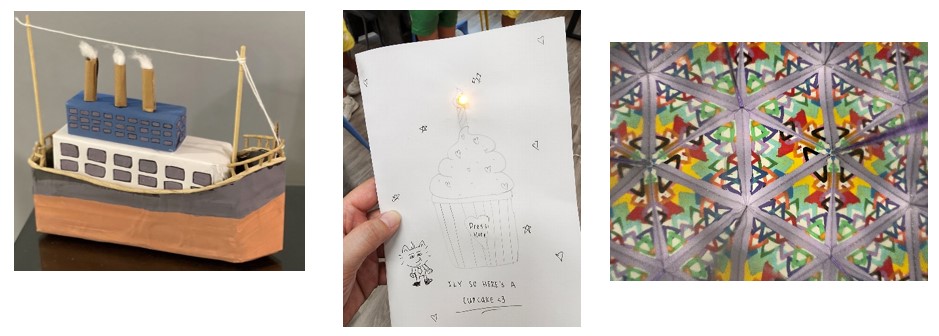 Press
here
ILY SO HERE'S A
CUPCAKE <3